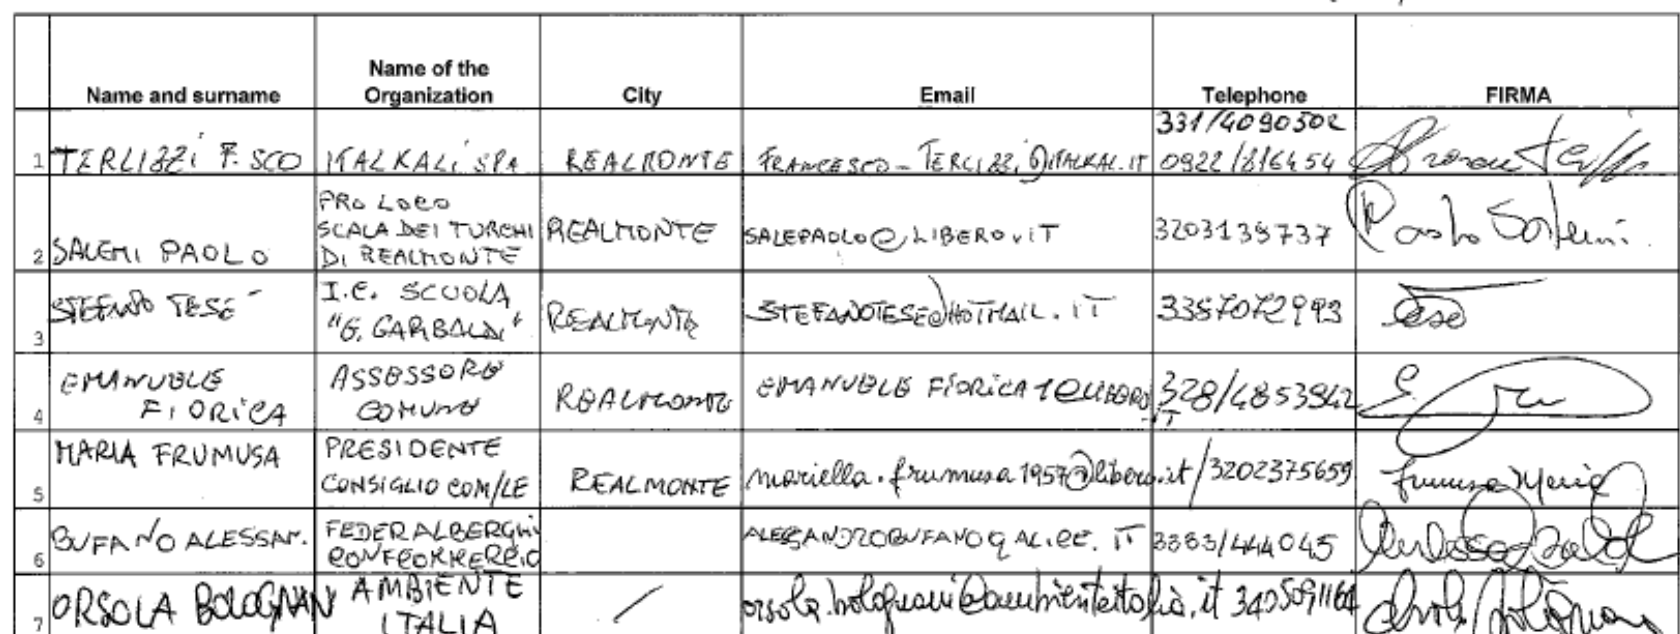 Name and surname
Name of the
Organization
City
Email
Telephone
FIRMA
1 TERLIZZI F.SCO ITALKALI SPA REALMONTE FRANCESCO-TERLIZZI@ITALKAL.IT 331/4090302
0922/816454
2 SALEMI PAOLO PRO LOCO
SCALA DEI TURCHI
DI REALMONTE
REALMONTE SALEPAOLO@LIBERO.IT 3203139737 Paolo Salemi
3 STEFANO TESÉ I.C. SCUOLA
"G. GARIBALDI"
REALMONTE STEFANOTESE@HOTMAIL.IT 3357072993 Tesé
4 EMANUELE
FIORICA
ASSESSORE
COMUNE
REALMONTE EMANUELE FIORICA1@LIBERO
.IT
328/4853942
5 MARIA FRUMUSA PRESIDENTE
CONSIGLIO COM/LE
REALMONTE mariella.frumusa1957@libero.it/3202375659 Frumusa Maria
6 BUFANO ALESSAN. FEDERALBERGHI
CONFCOMMERCIO
ALESSANDROBUFANO@ALICE.IT 3383/444045
7 ORSOLA BOLOGNANI AMBIENTE
ITALIA
/ orsola.bolognani@ambienteitalia.it 3405091164